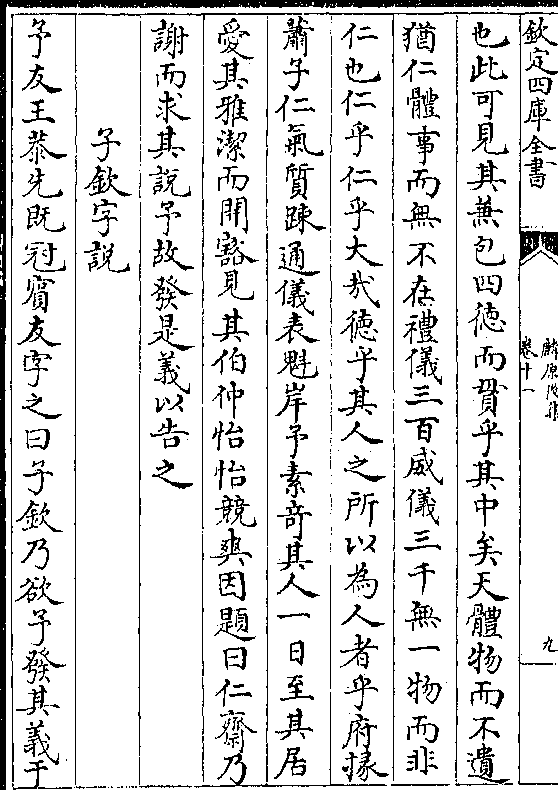 欽定四庫全書
麟原後集
卷十一
九
也此可見其兼包四徳而貫乎其中矣天體物而不遺
猶仁體事而無不在禮儀三百威儀三千無一物而非
仁也仁乎仁乎大哉徳乎其人之所以為人者乎府掾
蕭子仁氣質踈通儀表魁岸予素竒其人一日至其居
愛其雅潔而開豁見其伯仲怡怡競爽因題曰仁齋乃
謝而求其説予故發是義以告之
子欽字説
予友王恭先既冠賓友字之曰子欽乃欲予發其義于